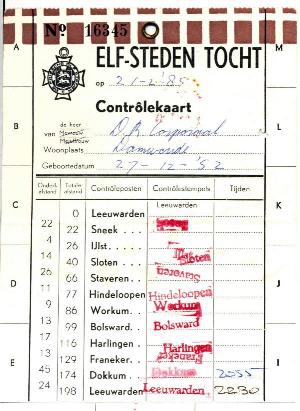 A
Nº 16345
M
ELF-STEDEN TOCHT
op 21-2-'85
Contrôlekaart
B
L
de heer
van Mevrouw
Mejuffrouw
Woonplaats Damwoude
Geboortedatum 27-12-'52
Onderl. afstand
Totale afstand
Contrôleposten
Contrôlestempels
Tijden
C
K
0 Leeuwarden Leeuwarden
22
22 Sneek
4
26 IJlst
14
40 Sloten Sloten
26
66 Staveren Staveren
11
77 Hindeloopen Hindeloopen
9
86 Workum Workum
13
99 Bolsward Bolsward
17
116 Harlingen Harlingen
13
129 Franeker Franeker
45
174 Dokkum Dokkum 2055
24
198 Leeuwarden Leeuwarden 2230
D
J
E
I